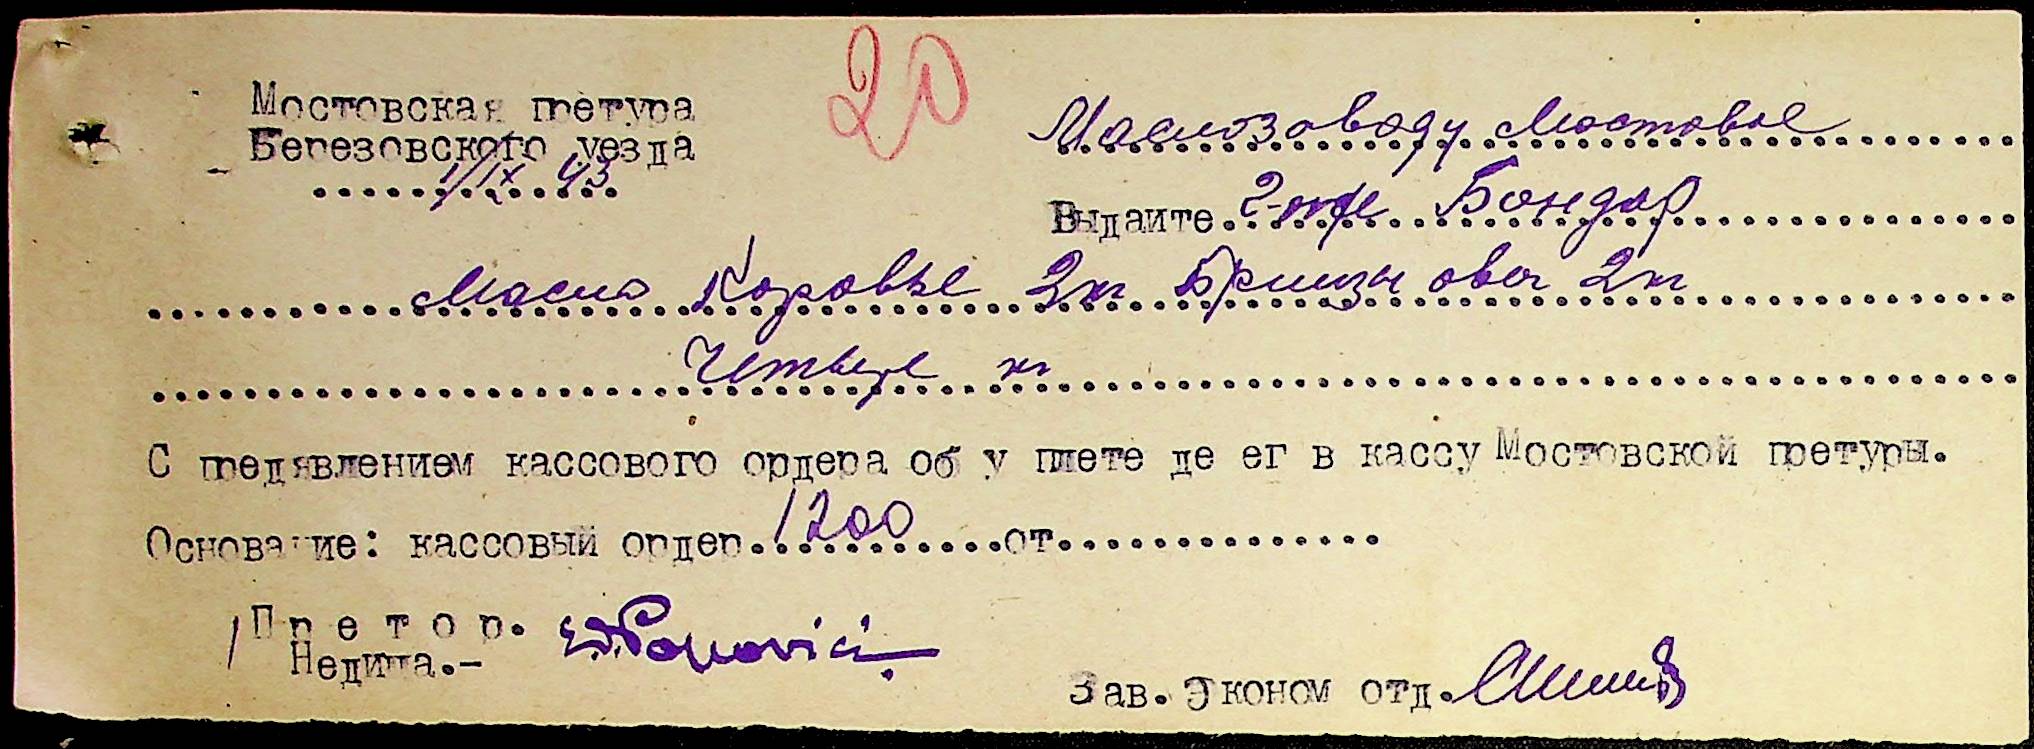 20
Мостовская претура
Березовского уезда
1/IX 43
Маслозаводу Мостовое
Выдайте г-же Бондар
Масло Коровье 2 кг Брынзы овеч 2 кг
Четыре кг
С предявлением кассового ордера об у плете де ег в кассу Мостовской претуры.
Основание: кассовый ордер 1200 от
Претор.
Недица.-
Popovici
Зав. Эконом отд.